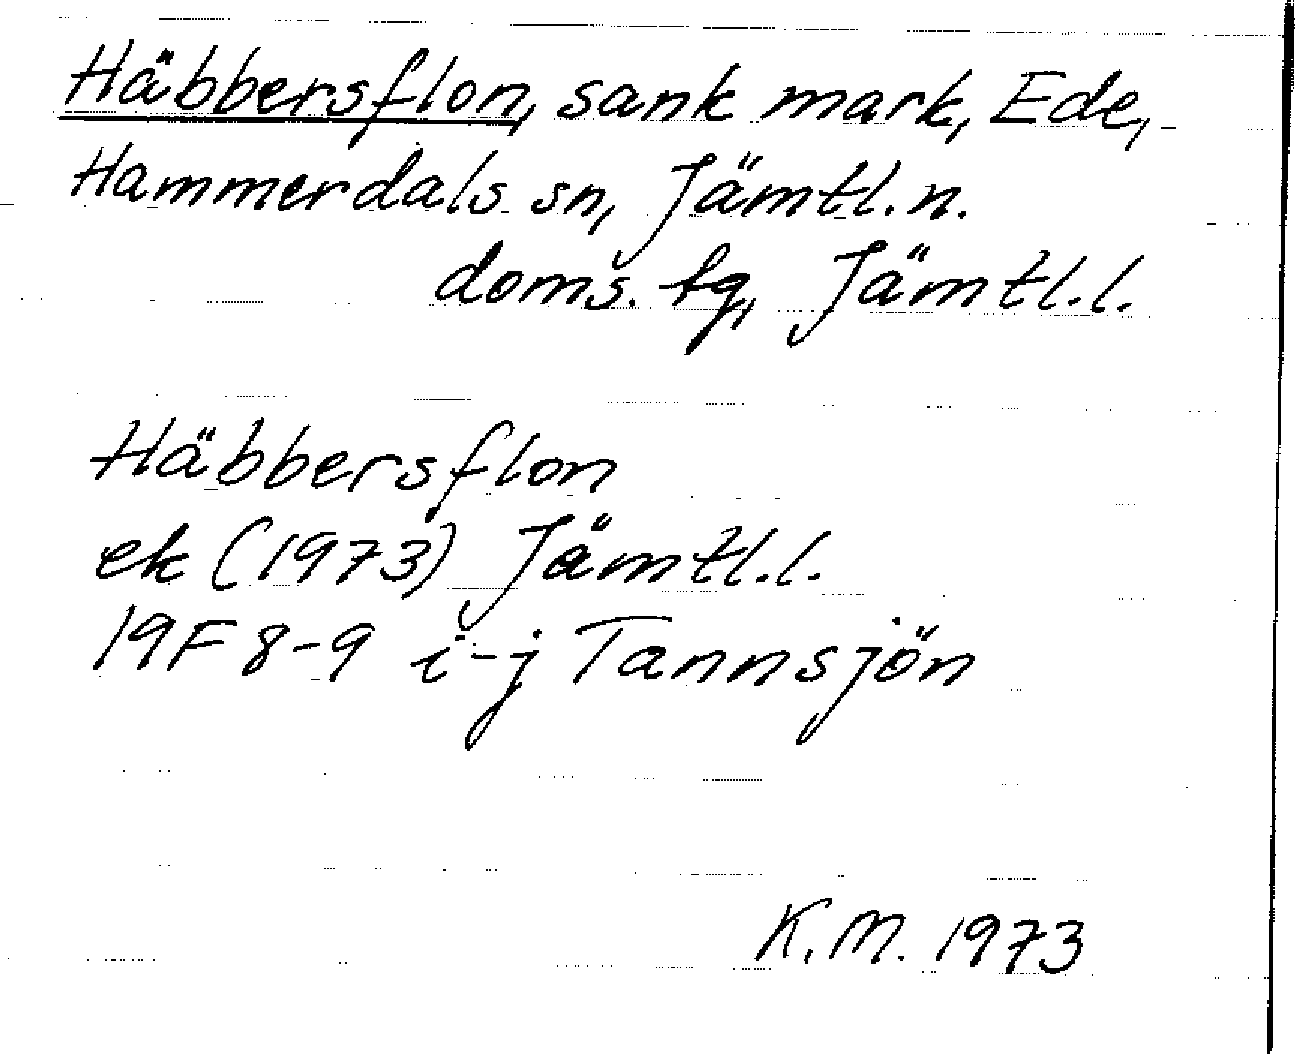 Häbbersflon, sank mark, Ede,
Hammerdals sn, Jämtl.n.
doms. tg, Jämtl.l.
Häbbersflon
ek (1973) Jämtl.l.
19F 8-9 i-j Tannsjön
K.M. 1973